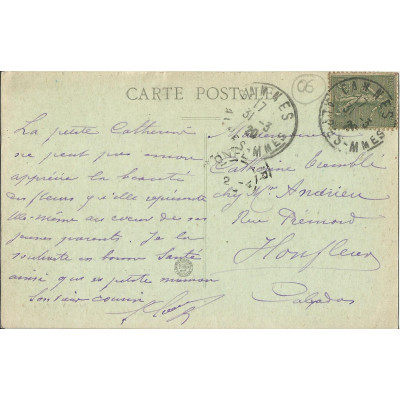 CARTE POSTALE
06
CANNES
17
31-3
20
ALPES-MMES
CANNES
ALPES-MMES
2-4
La petite Catherine
ne peut pas encore
apprécier la beauté
des fleurs, qu'elle représente
elle-même au cœur de ses
jeunes parents. Je la
souhaite en bonne santé
ainsi que sa petite maman
Son vieux cousin
Mademoiselle
Catherine
chez Mr. Andrieu
Rue Prémord
Honfleur
Calvados